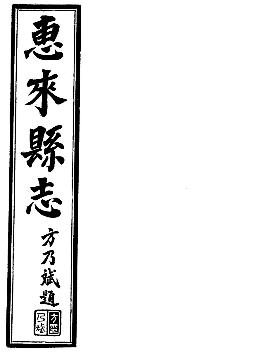 惠來縣志
方乃斌題